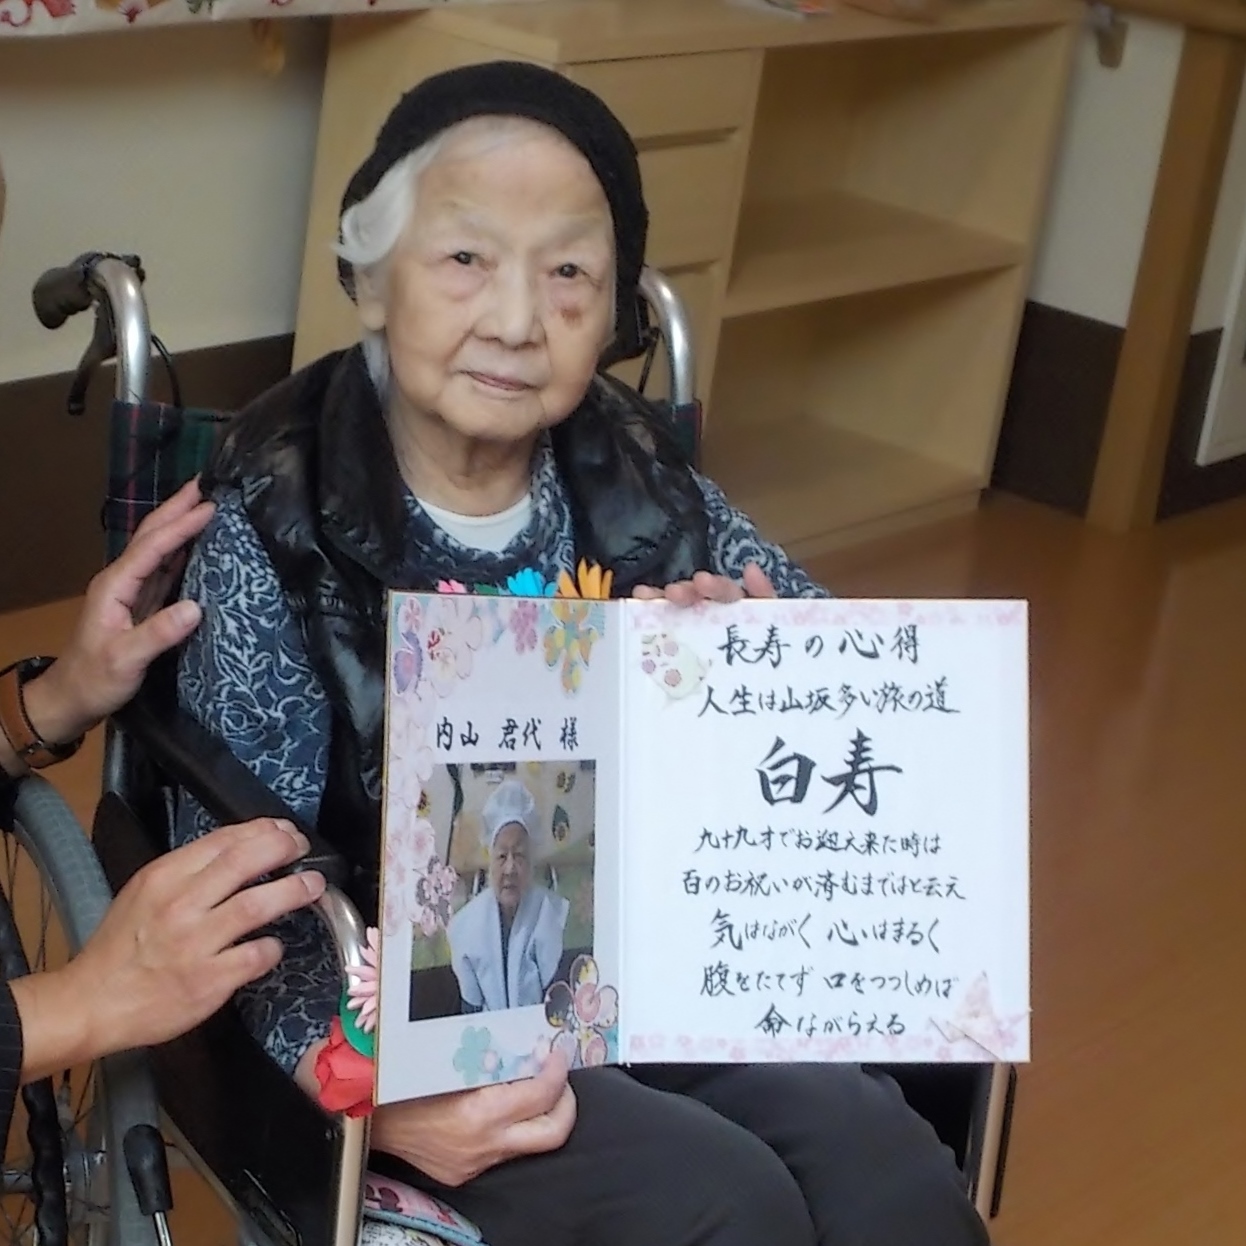 内山 君代 様
長寿の心得
人生は山坂多い旅の道
白寿
九十九才でお迎え来た時は
百のお祝いが済むまではと云え
気はながく 心はまるく
腹をたてず 口をつつしめば
命ながらえる